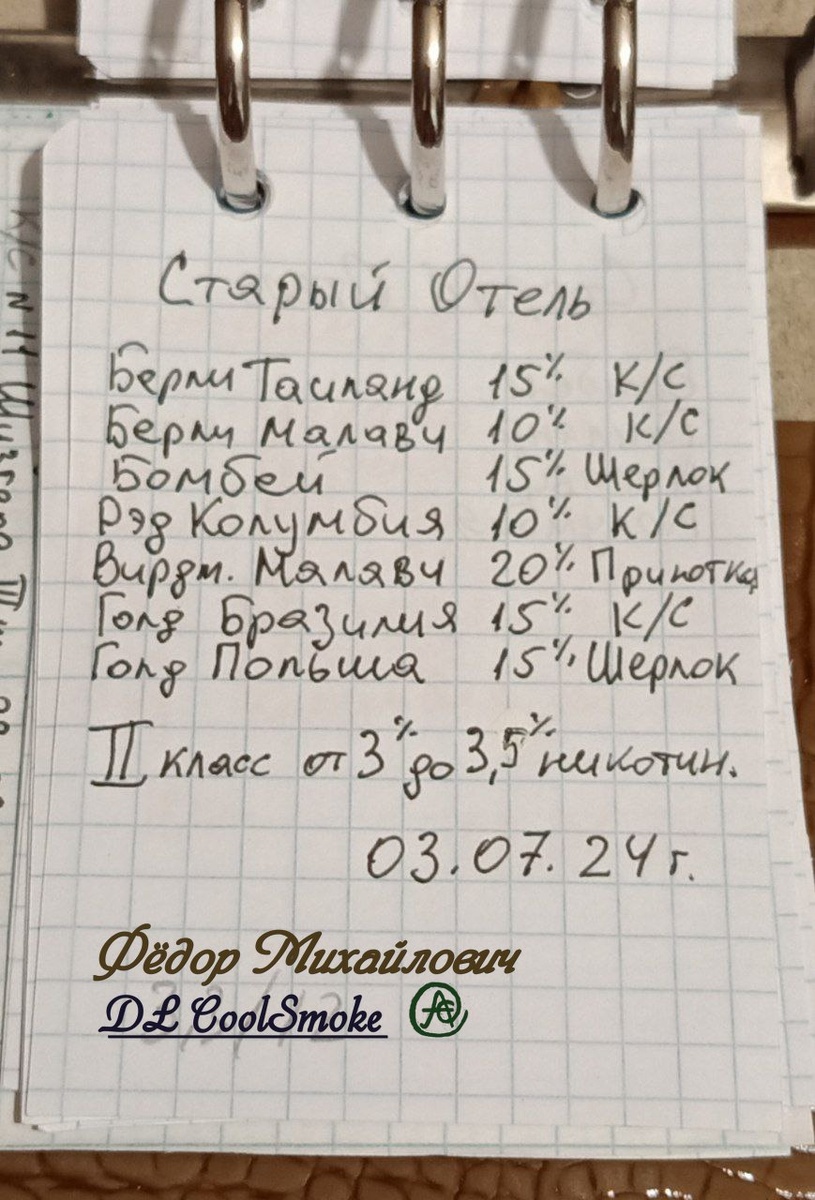 Старый Отель
Берли Таиланд 15% К/С
Берли Малави 10% К/С
Бомбей 15% Шерлок
Рэд Колумбия 10% К/С
Вирдж. Малави 20% Прилотка
Голд Бразилия 15% К/С
Голд Польша 15% Шерлок
II класс от 3% до 3,5% никотин.
03.07.24 г.
Фёдор Михайлович
DL CoolSmoke